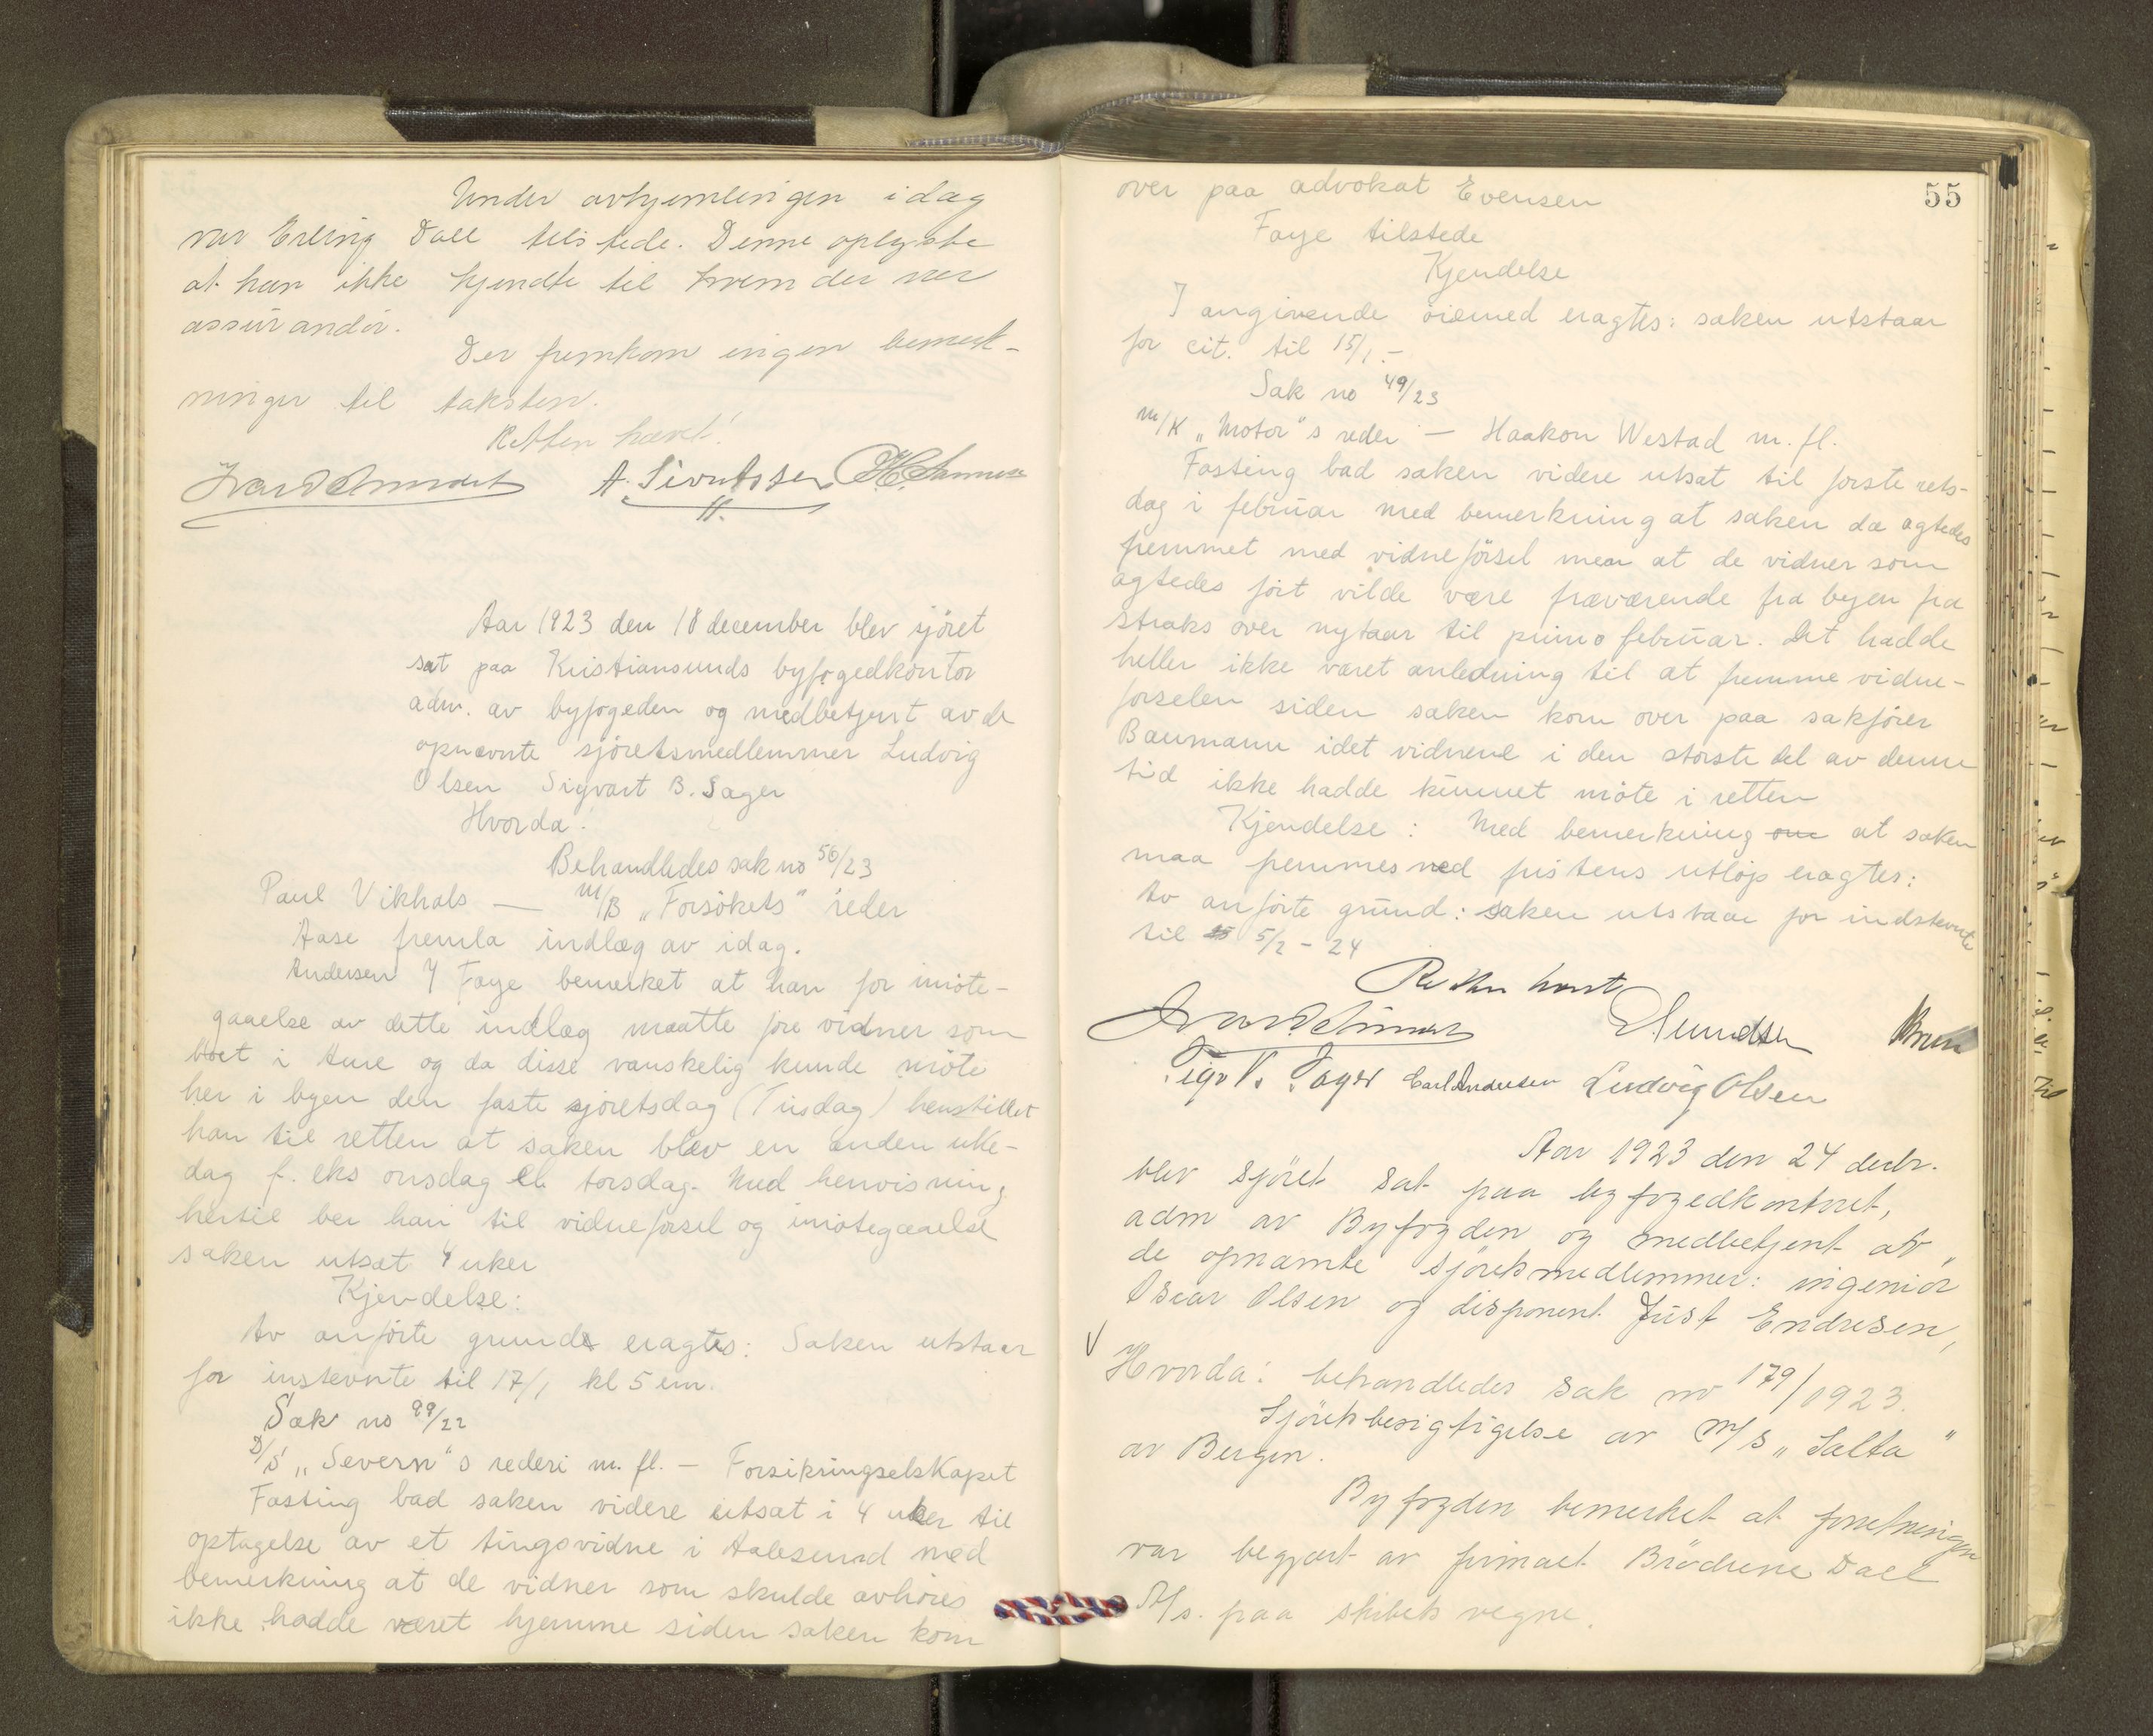 Under avhjemlingen idag
var Erling Dall tilstede. Denne oplyste
at han ikke kjendte til hvem der var
assurandør.
Der fremkom ingen bemerk-
ninger til taksten.
Retten hævet!
A. Sivertsen
Aar 1923 den 18 december blev sjöret
sat paa Kristiansunds byfogedkontor
adm. av byfogeden og medbetjent av de
opnævnte sjöretsmedlemmer Ludvig
Olsen Sigvart B. Sager
Hvorda!
Behandledes sak no 56/23
Paul Vikhals — M/B „Forsökets" reder
Aase fremla indlæg av idag.
Andersen f Faye bemerket at han for imöte-
gaaelse av dette indlæg maatte före vidner som
boet i Aure og da disse vanskelig kunde möte
her i byen den faste sjöretsdag (Tirsdag) henstillet
han til retten at saken blev en anden uke-
dag f. eks onsdag el torsdag. Med henvisning
hertil ber han til vidneförsel og imötegaaelse
saken utsat 4 uker
Kjendelse:
Av anförte grunde eragtes: Saken utstaar
for instevnte til 17/1 kl 5 em.
Sak no 99/22
D/S „Severn"s rederi m. fl. — Forsikringselskapet
Fasting bad saken videre utsat i 4 uker til
optagelse av et tingsvidne i Aalesund med
bemerkning at de vidner som skulde avhöres
ikke hadde været hjemme siden saken kom
55
over paa advokat Evensen
Faye tilstede
Kjendelse
I angivende öiemed eragtes: saken utstaar
for cit. til 15/1.-
Sak no 49/23
M/K „Motor"s reder — Haakon Westad m. fl.
Fasting bad saken videre utsat til förste rets-
dag i februar med bemerkning at saken da agtedes
fremmet med vidneförsel men at de vidner som
agtedes fört vilde være fraværende fra byen fra
straks over nytaar til primo februar. Det hadde
heller ikke været anledning til at fremme vidne-
förselen siden saken kom over paa sakförer
Baumann idet vidnene i den störste del av denne
tid ikke hadde kunnet möte i retten
Kjendelse: Med bemerkning om at saken
maa fremmes ved fristens utlöp eragtes:
Av anförte grund: saken utstaar for indstevnte
til 5/2 - 24
Retten hævet
Sigv B. Sager Carl Andersen Ludvig Olsen
Aar 1923 den 24 decbr.
blev sjöret sat paa byfogedkontoret,
adm av Byfogden og medbetjent av
de opnævnte sjöretsmedlemmer: ingeniör
Oscar Olsen og disponent Just Endresen,
V
Hvorda: behandledes sak no 179/1923.
Sjöretsbesigtigelse av M/S „Salta"
av Bergen.
Byfogden bemerket at forretningen
var begjært av firmaet Brödrene Dall
A/s. paa skibets vegne.